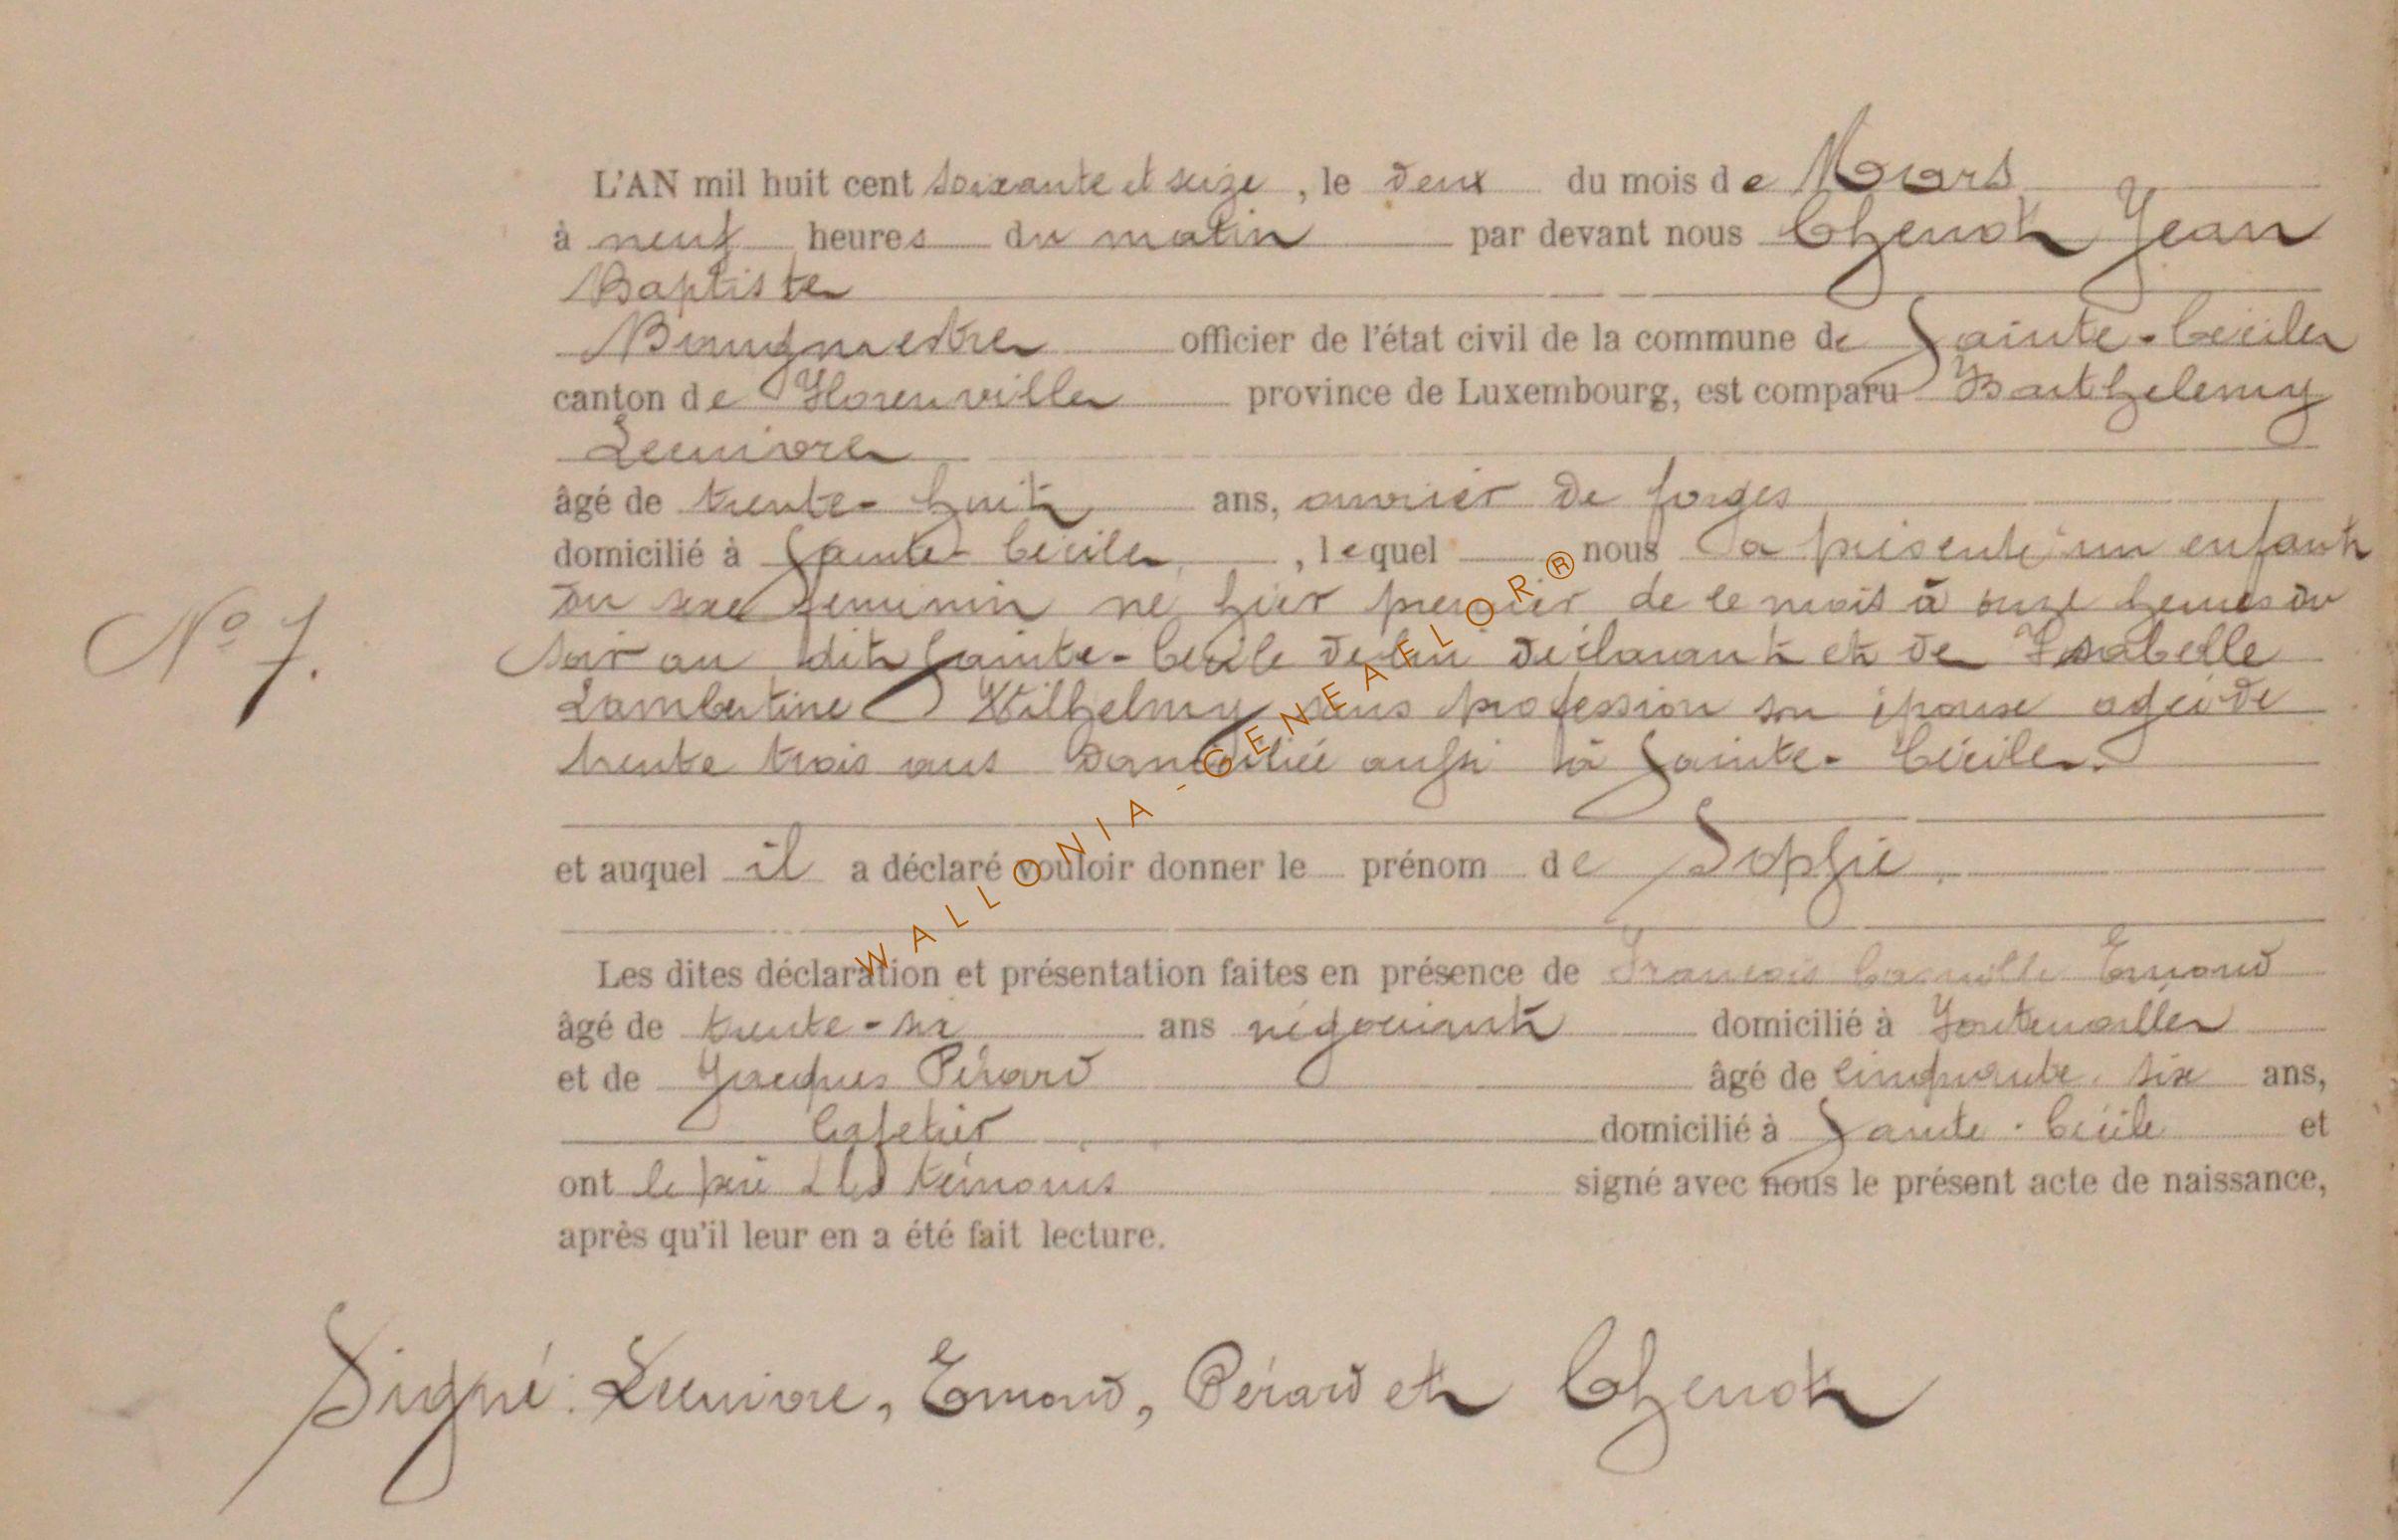 L'AN mil huit cent soixante et seize, le deux du mois de Mars
à neuf heures du matin par devant nous Chenot Jean
Baptiste
Bourgmestre officier de l'état civil de la commune de Sainte-Cécile
canton de Florenville province de Luxembourg, est comparu Barthelemy
âgé de trente-huit ans, ouvrier de forges
domicilié à Sainte-Cécile, lequel nous a présenté un enfant
du sexe feminin né hier premier de ce mois à onze heures du
N° 7.
soir au dit Sainte-Cécile de lui déclarant et de Isabelle
Lambertine Wilhelmy sans profession son épouse agée de
trente trois ans domiciliée aussi à Sainte-Cécile.
et auquel il a déclaré vouloir donner le prénom de Sophie.
Les dites déclaration et présentation faites en présence de François Camille Emond
âgé de trente-six ans négociant domicilié à
et de Jacques Pérard âgé de cinquante six ans,
Cafetier domicilié à Sainte-Cécile et
ont le père & les témoins signé avec nous le présent acte de naissance,
après qu'il leur en a été fait lecture.
Signé: Emond, Pérard et Chenot
WALLONIA-GENEAFLOR®